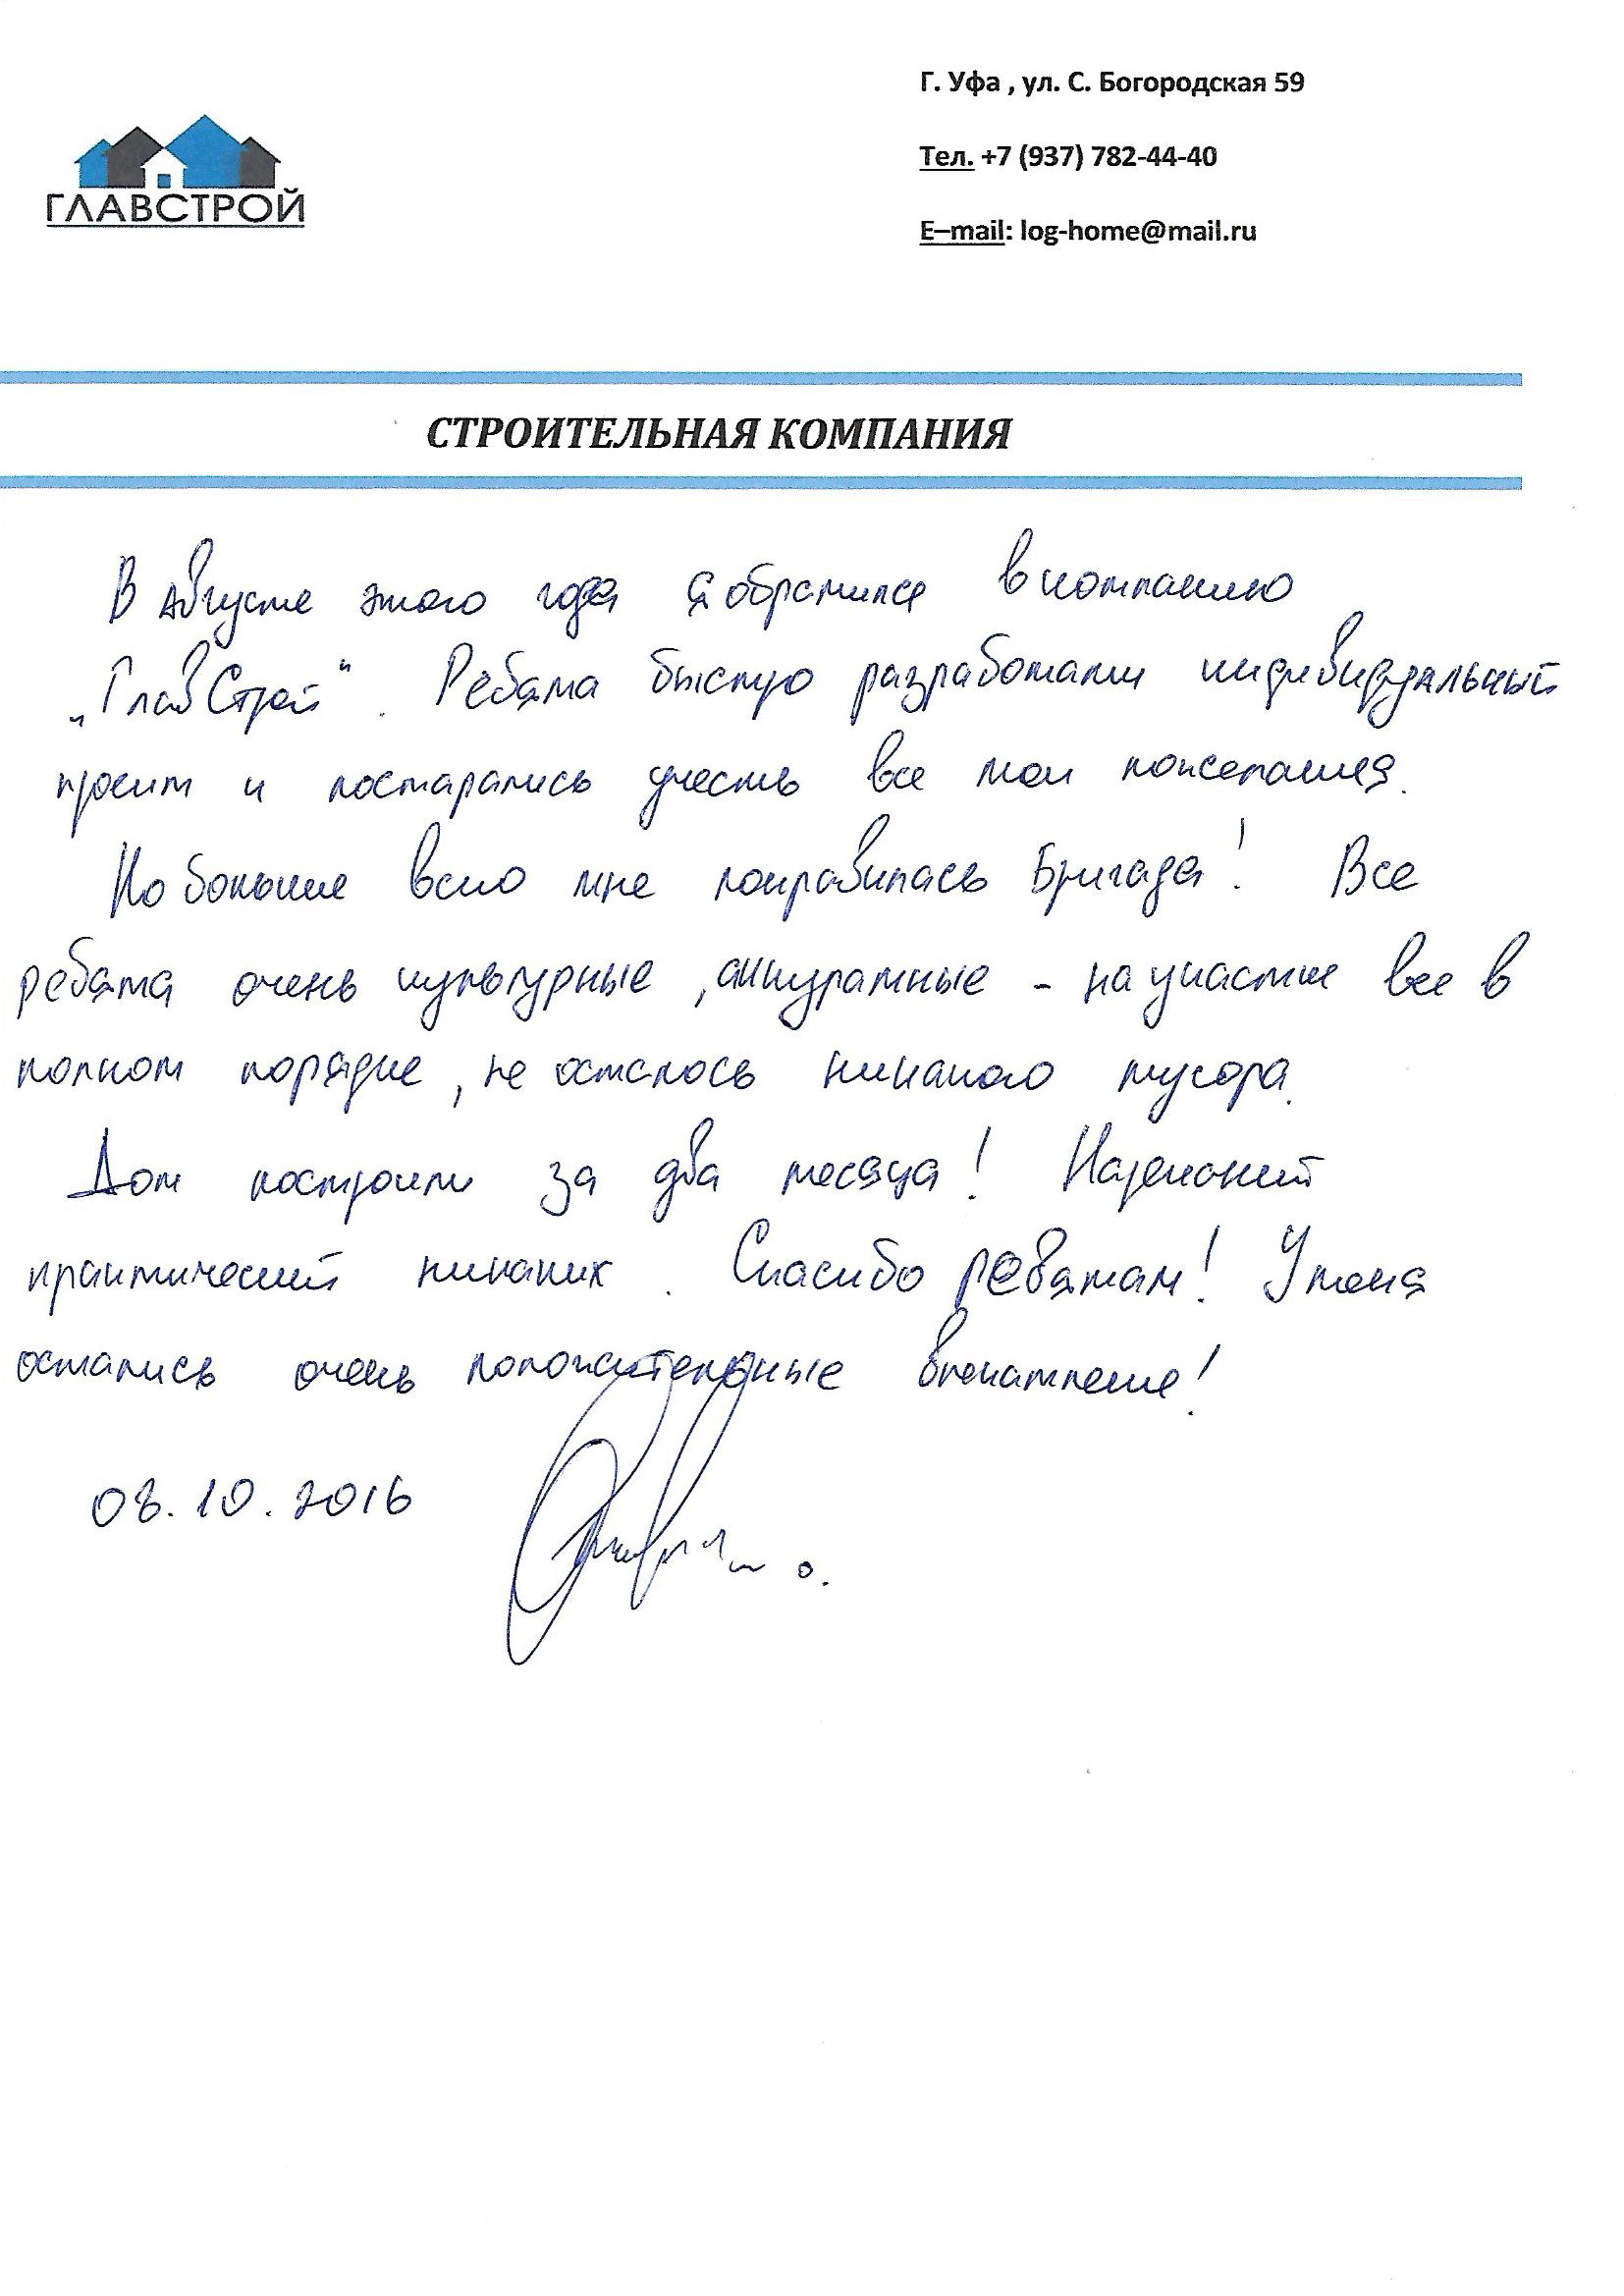 Г. Уфа , ул. С. Богородская 59
Тел. +7 (937) 782-44-40
E–mail: log-home@mail.ru
ГЛАВСТРОЙ
СТРОИТЕЛЬНАЯ КОМПАНИЯ
В августе этого года я обратился в компанию
„ГлавСтрой". Ребята быстро разработали индивидуальный
проект и постарались учесть все мои пожелания.
Но больше всего мне понравилась Бригада! Все
ребята очень культурные, аккуратные - на участке все в
полном порядке, не осталось никакого мусора.
Дом построили за два месяца! Нареканий
практический никаких. Спасибо ребятам! У меня
остались очень положительные впечатление!
08.10.2016